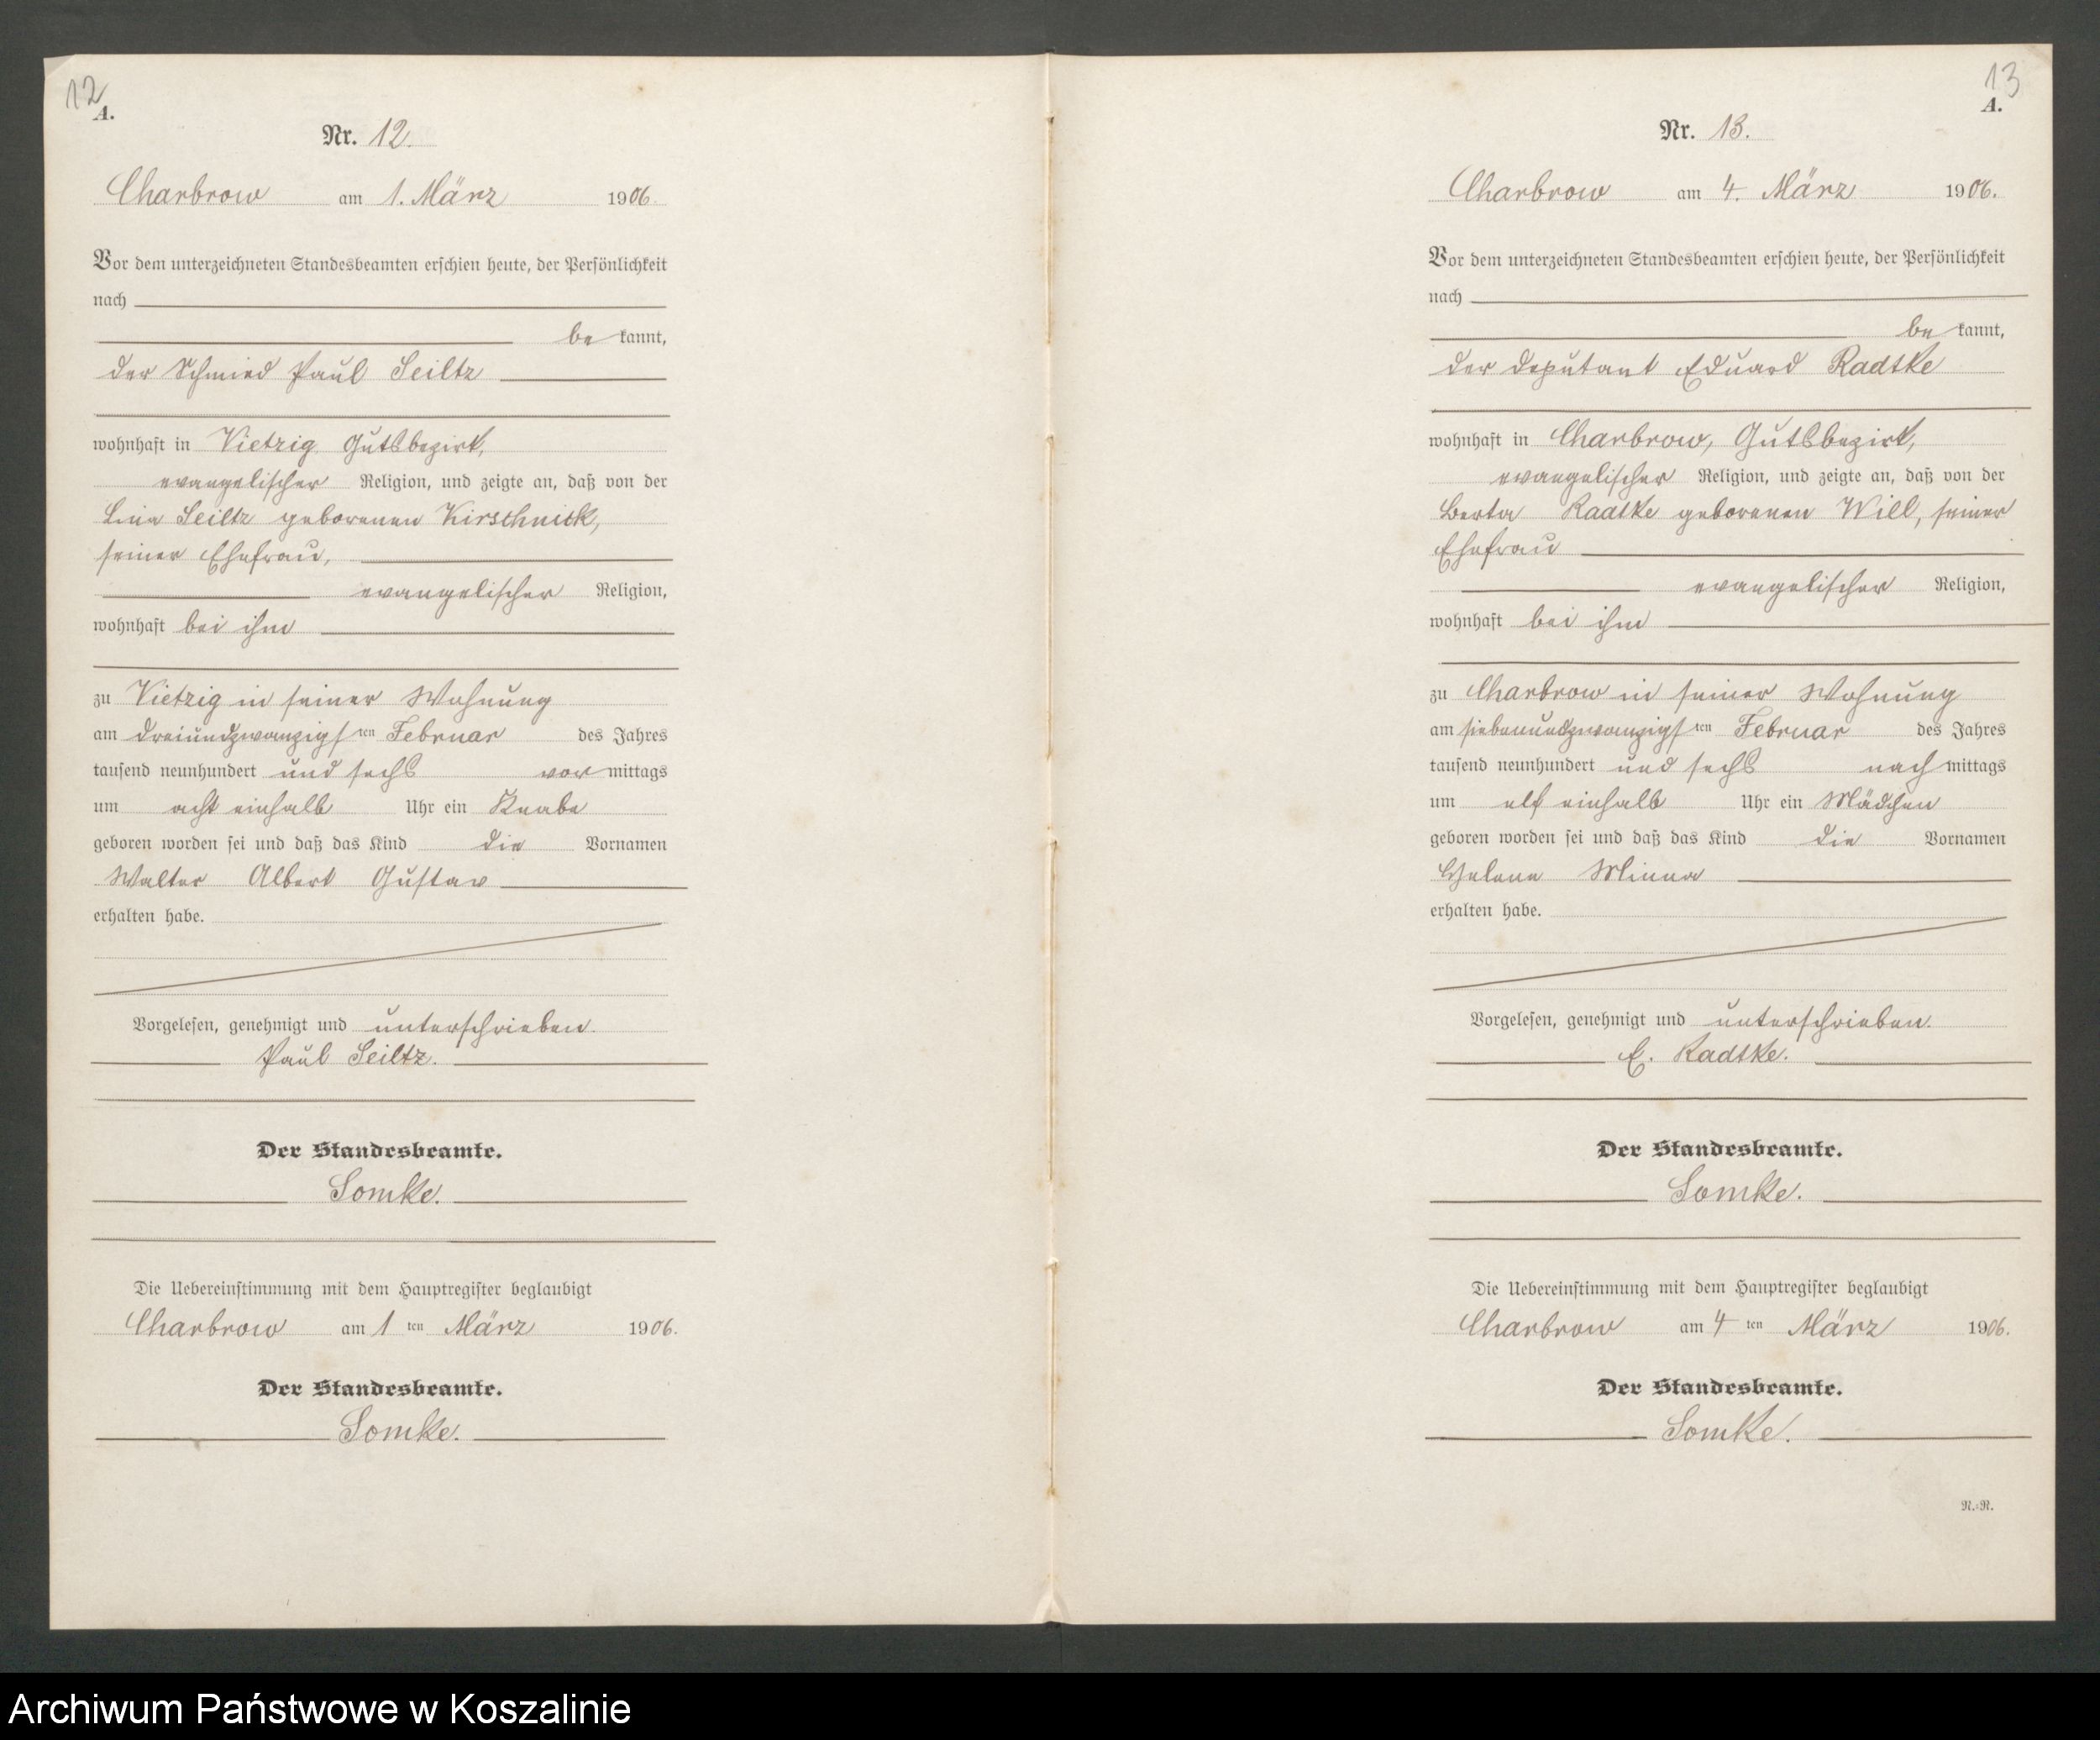 12
A.
Nr. 12.
Charbrow am 1. März 1906.
Vor dem unterzeichneten Standesbeamten erschien heute, der Persönlichkeit
nach
be kannt,
der Schmied Paul Seiltz
wohnhaft in Vietzig Gutsbezirk,
evangelischer Religion, und zeigte an, daß von der
Lina Seiltz geborenen Kirschnick,
seiner Ehefrau,
evangelischer Religion,
wohnhaft bei ihm
zu Vietzig in seiner Wohnung
am dreiundzwanzigsten Februar des Jahres
tausend neunhundert und sechs vor mittags
um acht einhalb Uhr ein Knabe
geboren worden sei und daß das Kind die Vornamen
Walter Albert Gustav
erhalten habe.
Vorgelesen, genehmigt und unterschrieben.
Paul Seiltz.
Der Standesbeamte.
Somke.
Die Uebereinstimmung mit dem Hauptregister beglaubigt
Charbrow am 1 ten März 1906.
Der Standesbeamte.
Somke.
13
A.
Nr. 13.
Charbrow am 4. März 1906.
Vor dem unterzeichneten Standesbeamten erschien heute, der Persönlichkeit
nach
be kannt,
der Deputant Eduard Radtke
wohnhaft in Charbrow, Gutsbezirk,
evangelischer Religion, und zeigte an, daß von der
Berta Radtke geborenen Will, seiner
Ehefrau
evangelischer Religion,
wohnhaft bei ihm
zu Charbrow in seiner Wohnung
am siebenundzwanzigsten Februar des Jahres
tausend neunhundert und sechs nach mittags
um elf einhalb Uhr ein Mädchen
geboren worden sei und daß das Kind die Vornamen
Helene Minna
erhalten habe.
Vorgelesen, genehmigt und unterschrieben.
E. Radtke.
Der Standesbeamte.
Somke.
Die Uebereinstimmung mit dem Hauptregister beglaubigt
Charbrow am 4 ten März 1906.
Der Standesbeamte.
Somke.
N.=N.
Archiwum Państwowe w Koszalinie